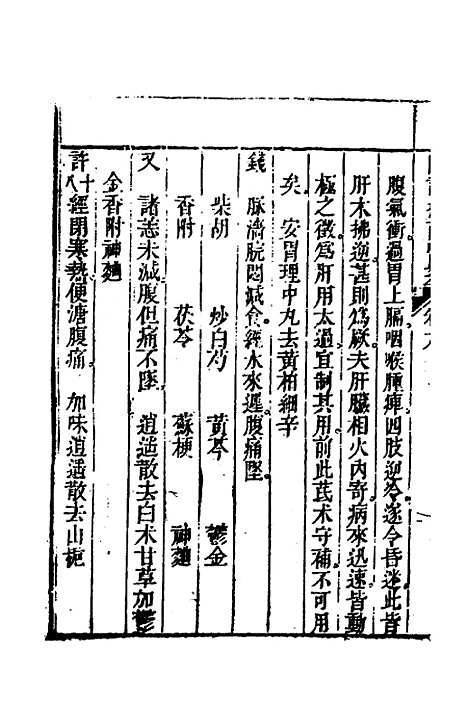 腹氣衝過胃上膈咽喉腫痺四肢逆冷遂令昏迷此皆
肝木拂逆甚則爲厥夫肝臟相火內寄病來迅速皆動
極之徵爲肝用太過宜制其用前此芪术守補不可用
矣 安胃理中丸去黃柏細辛
錢 脉濇脘悶減食經水來遲腹痛墜
柴胡 炒白芍 黃芩 鬱金
香附 茯苓 蘇梗 神麯
又 諸恙未減腹但痛不墜 逍遥散去白术甘草加鬱
金香附神麯
許十八 經閉寒熱便溏腹痛 加味逍遥散去山梔